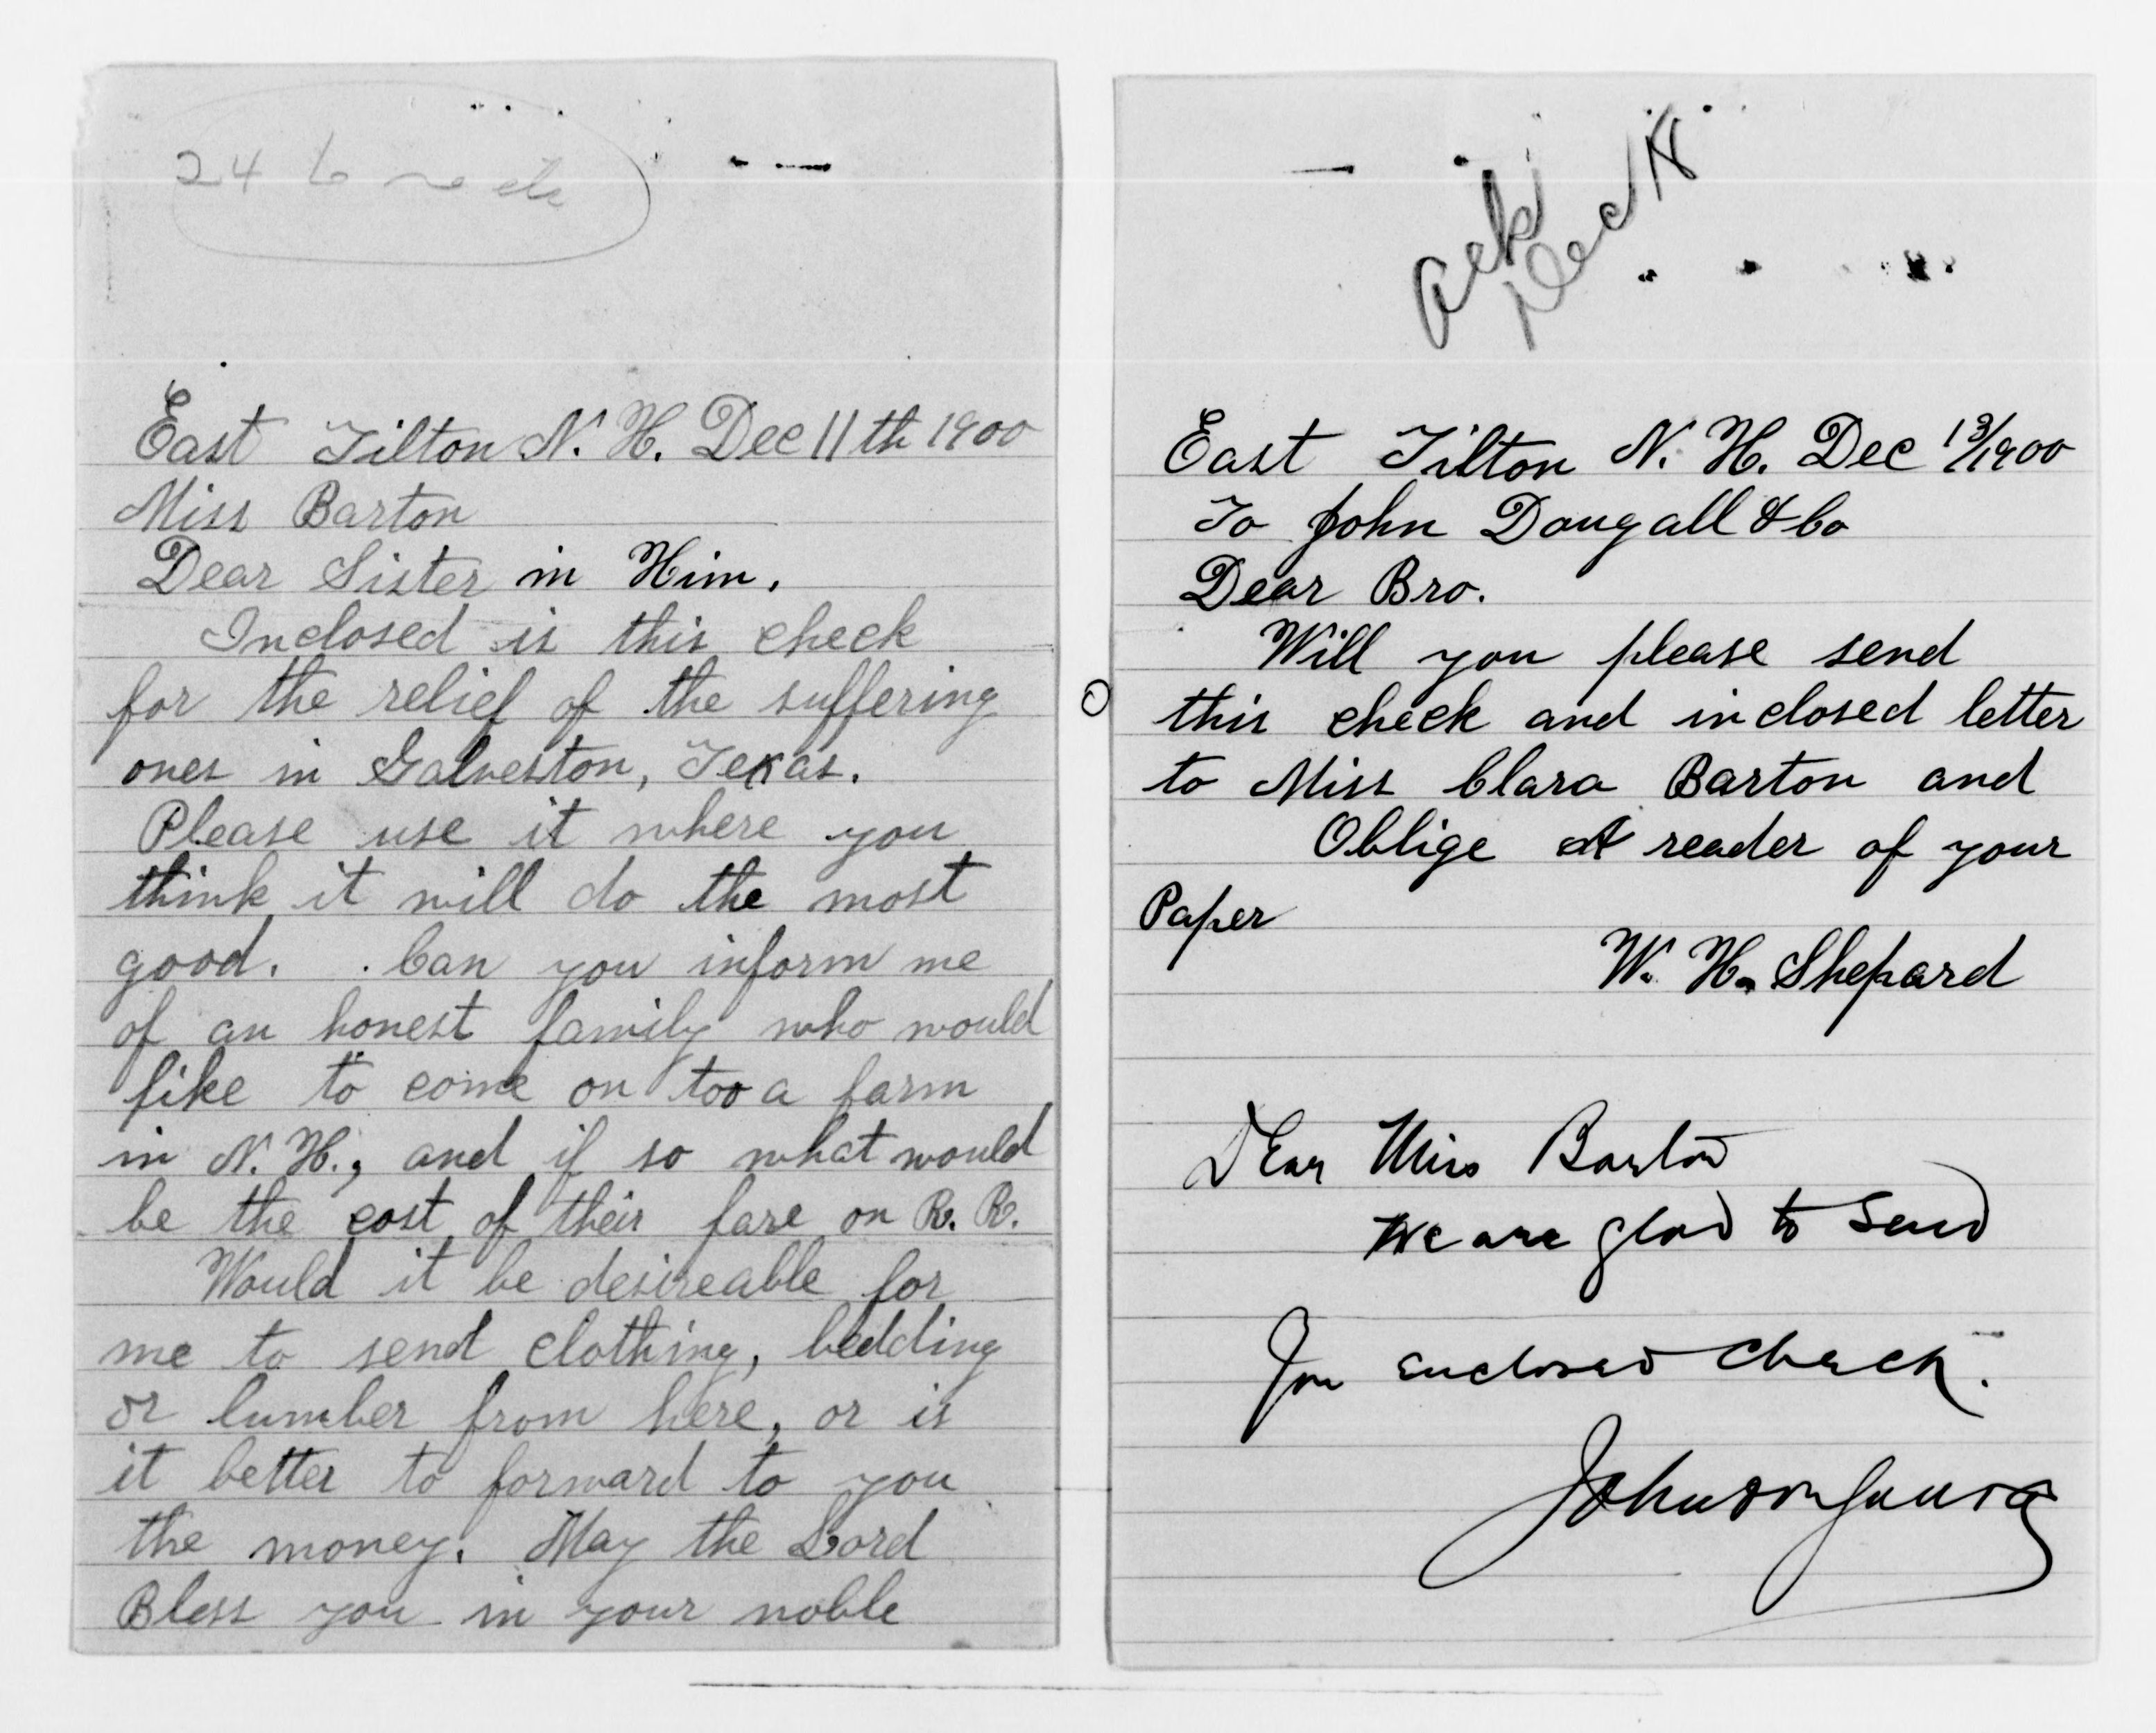 24
East Tilton N. H. Dec 11th 1900
Miss Barton
Dear Sister in Him.
Inclosed is this check
for the relief of the suffering
ones in Galveston, Texas.
Please use it where you
think it will do the most
good. Can you inform me
of an honest family who would
like to come on too a farm
in N. H., and if so what would
be the cost of their fare on R. R.
Would it be desireable for
me to send clothing, bedding
or lumber from here, or is
it better to forward to you
the money. May the Lord
Bless you in your noble
Ack
Dec 18
East Tilton N. H. Dec 13/1900
To John Dougall & Co
Dear Bro.
Will you please send
this check and inclosed letter
to Miss Clara Barton and
Oblige A reader of your
Paper
W. H. Shepard
Dear Miss Barton
We are glad to send
you enclosed check.